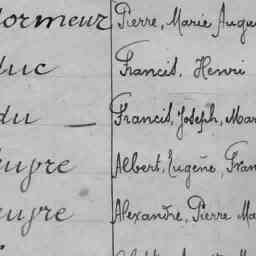 dormeur Pierre, Marie Augu
duc Francis, Henri
du — Francis, Joseph, Mar
eupre Albert, Eugène, Fran
eupre Alexandre, Pierre Ma